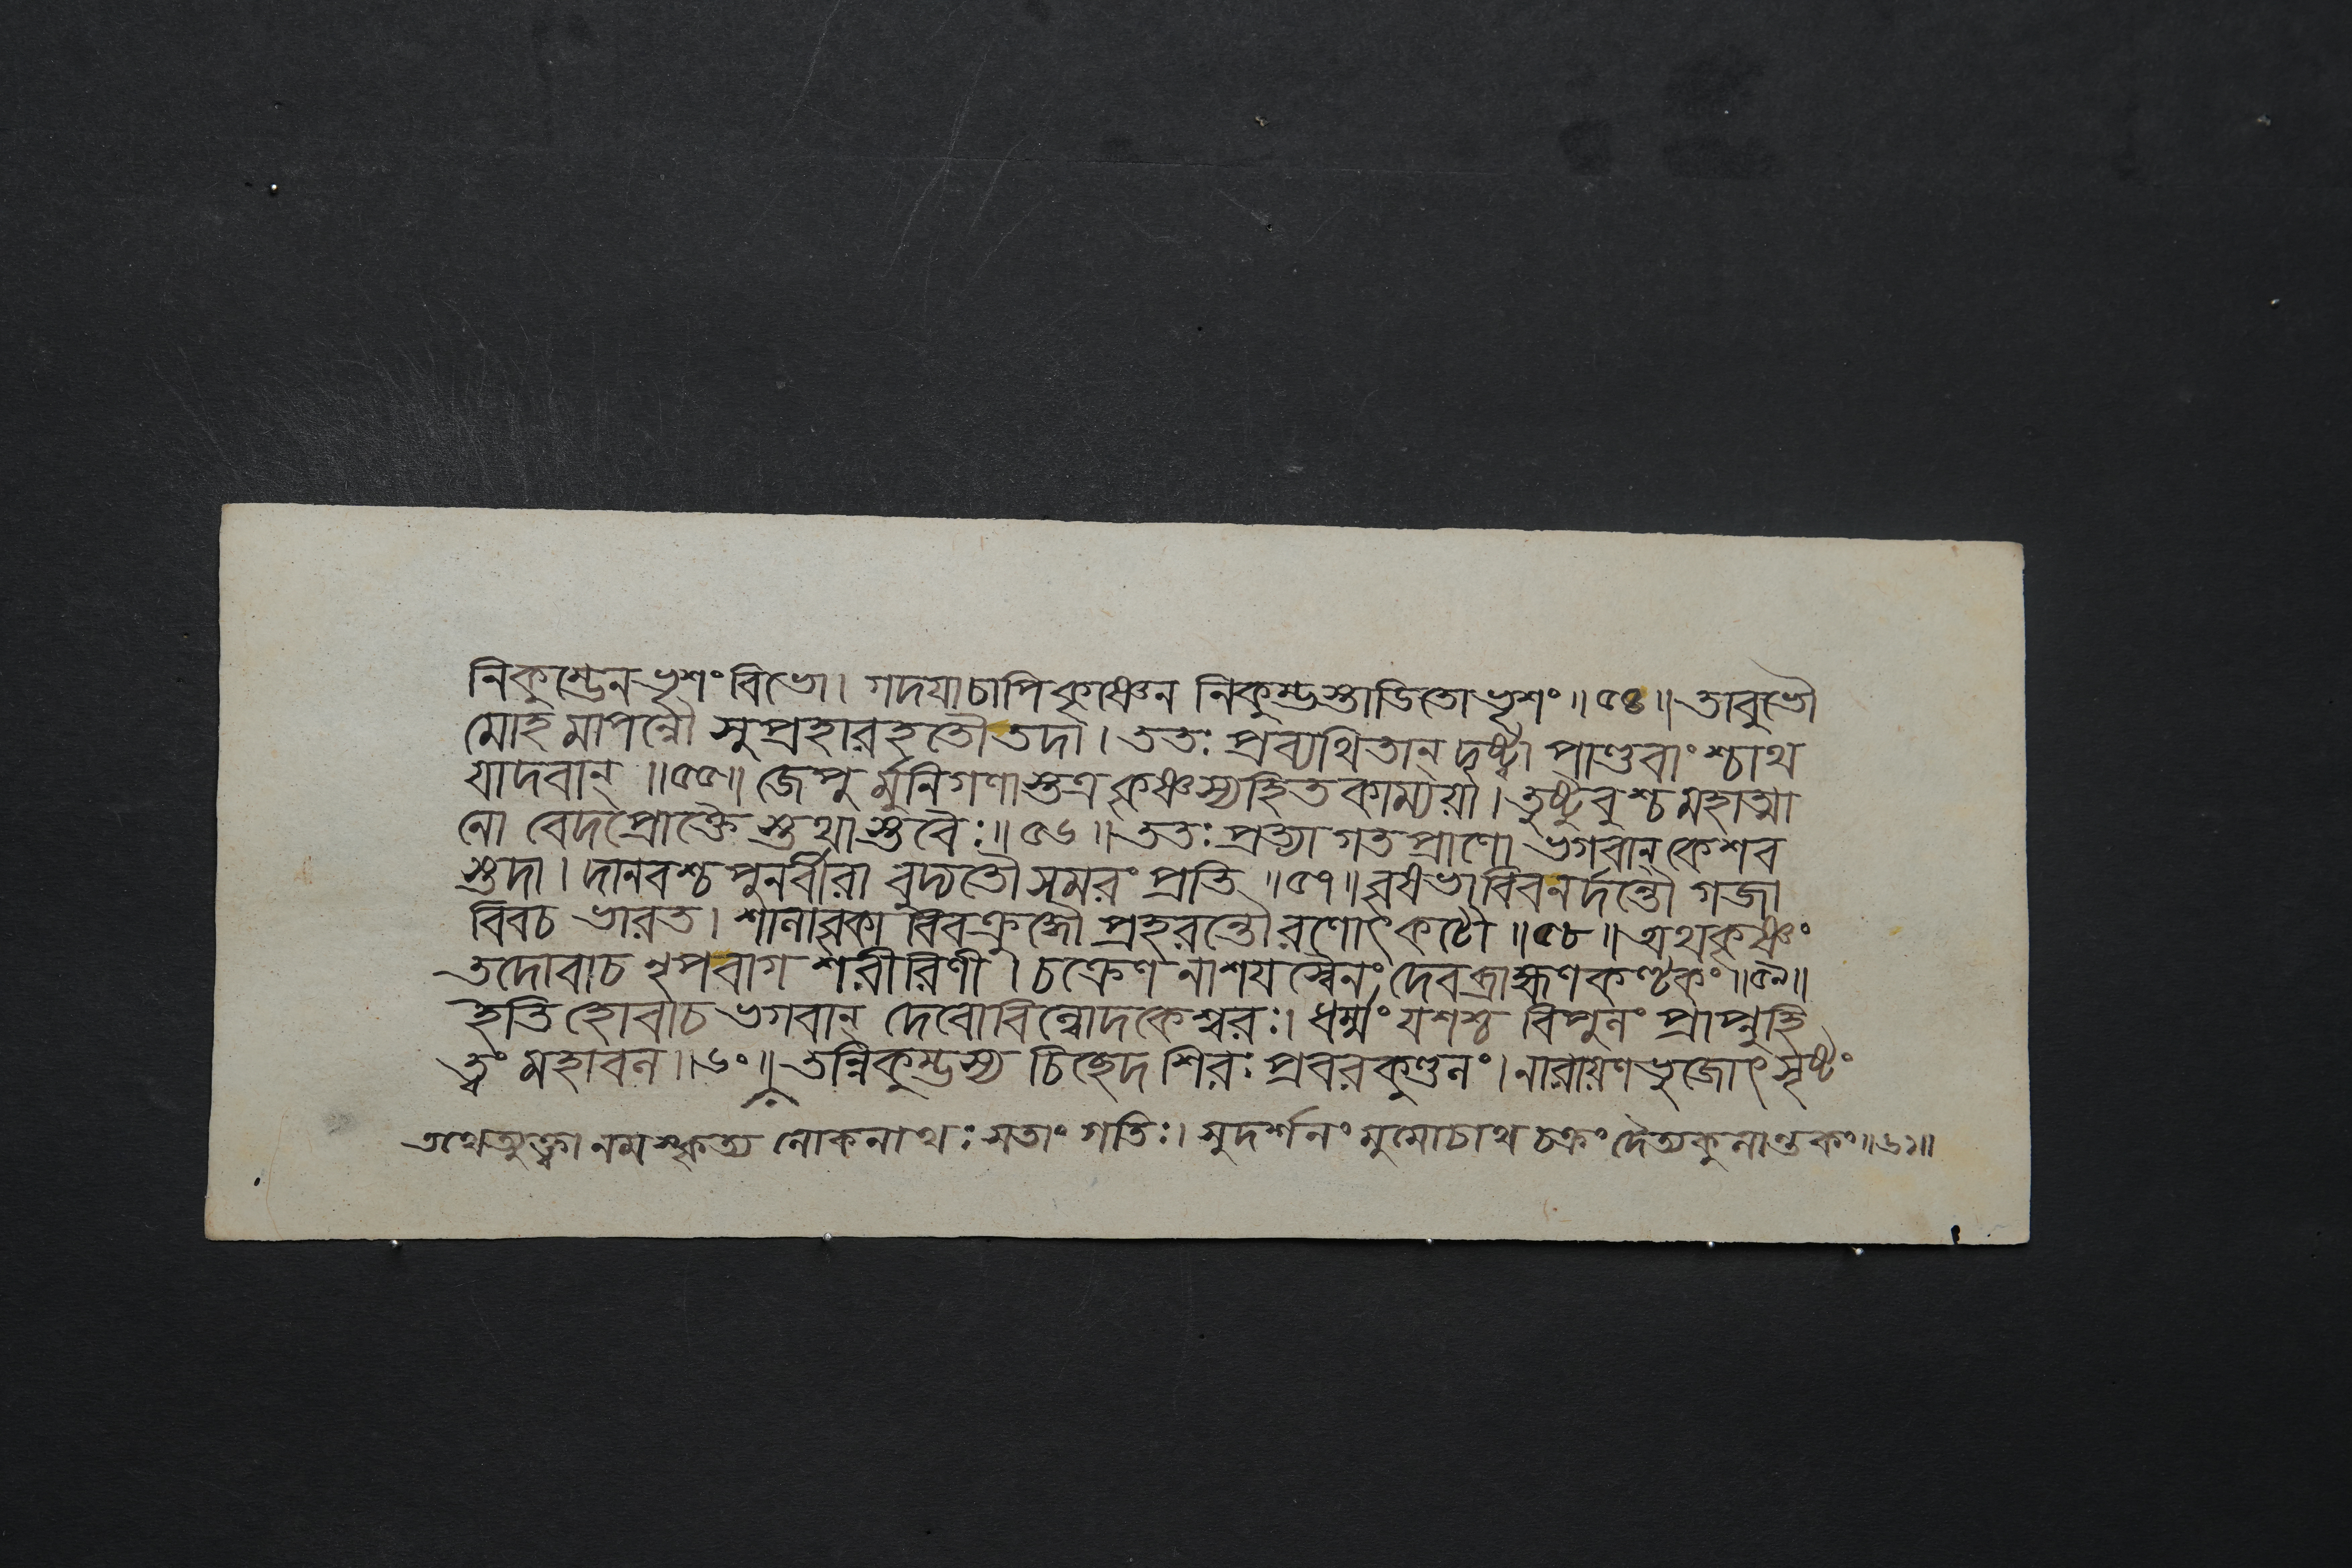 নিকুম্ভেন ভৃশং বিভো। গদযাচাপি কৃষ্ণেন নিকুম্ভস্তাডিতো ভৃশং॥৫৪॥ তাবুভৌ
মোহমাপন্নৌ সুপ্রহারহতৌ তদা। ততঃ প্রব্যথিতান্ দৃষ্ট্বা পাণ্ডবাংশ্চাথ
যাদবান্॥৫৫॥ জেপু র্মুনিগণাস্তত্র কৃষ্ণস্য হিতকাম্যয়া। তুষ্টুবুশ্চ মহাত্মা
নো বেদপ্রোক্তৈ স্তথা স্তবৈঃ॥৫৬॥ ততঃ প্রত্যাগতপ্রাণো ভগবান্ কেশব
স্তদা। দানবশ্চ পুনর্বীরা বুদ্যতৌ সমরং প্রতি॥৫৭॥ বৃষভাবিবনর্দন্তৌ গজা
বিবচ ভারত। শালাবৃকা বিবক্রুদ্ধৌ প্রহরন্তৌ রণোৎকটৌ॥৫৮॥ অথ কৃষ্ণং
তদোবাচ নৃপ বাগ শরীরিণী। চক্রেণ নাশযস্বৈনং দেবব্রাহ্মণকণ্টকং॥৫৯॥
ইতি হোবাচ ভগবান্ দেবো বিল্বোদকেশ্বরঃ। ধর্ম্মং যশশ্চ বিপুলং প্রাপ্নুহি
ত্বং মহাবল॥৬০॥ তন্নিকুম্ভস্য চিচ্ছেদ শিরঃ প্রবরকুণ্ডলং। নারায়ণভুজোৎসৃষ্টং
তথেত্যুক্ত্বা নমস্কৃত্য লোকনাথঃ সতাং গতিঃ। সুদর্শনং মুমোচাথ চক্রং দৈত্যকুলান্তকং॥৬১॥